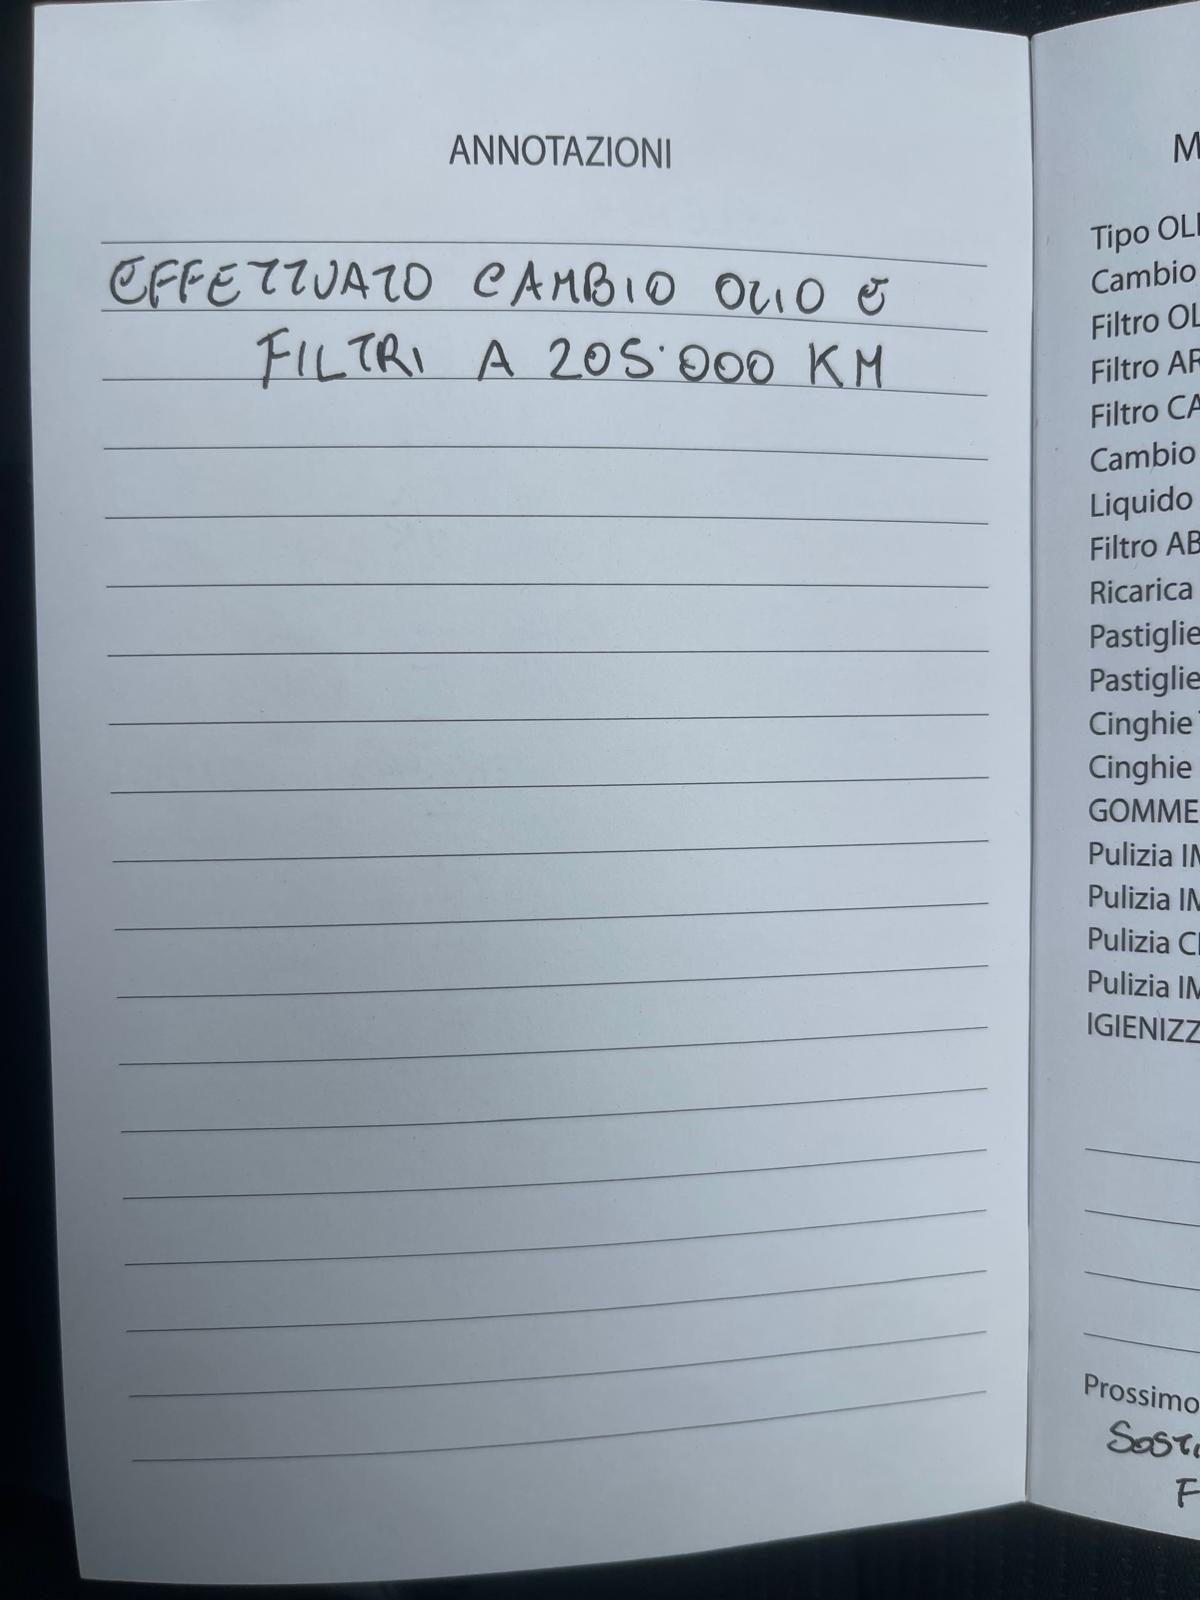 ANNOTAZIONI
EFFETTUATO CAMBIO OLIO E
FILTRI A 205.000 KM
Tipo
Cambio
Filtro
Filtro
Filtro
Cambio
Liquido
Filtro
Ricarica
Pastiglie
Pastiglie
Cinghie
Cinghie
GOMME
Pulizia
Pulizia
Pulizia
Pulizia
Prossimo